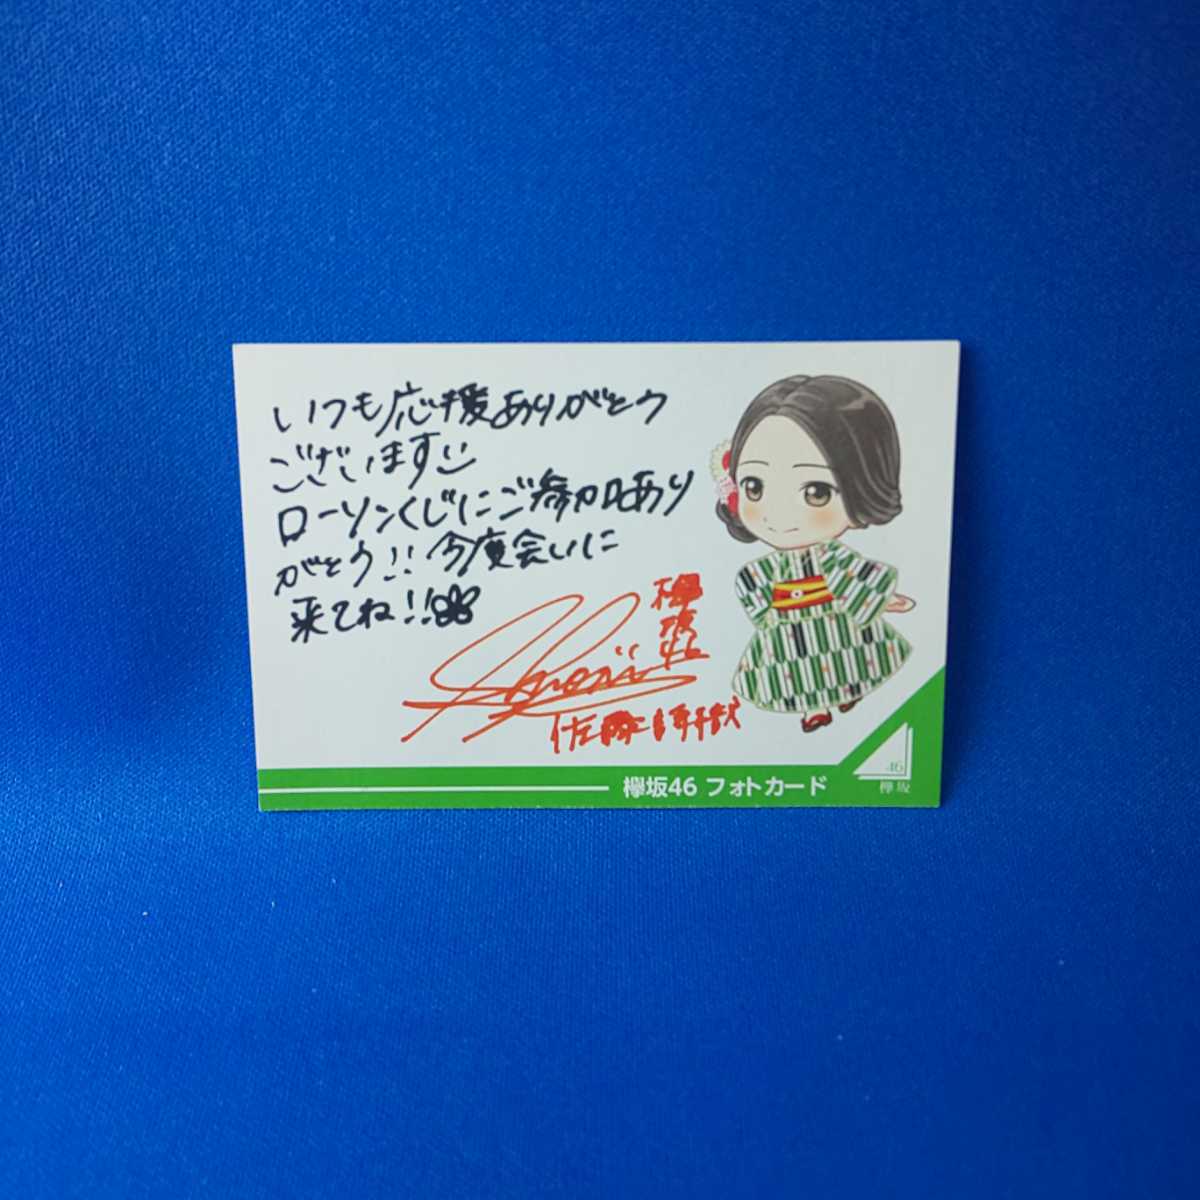 いつも応援ありがとう
ございます
ローソンくじにご参加あり
がとう!!今度会いに
来てね!!
欅
坂
46
Shiori
佐藤詩織
欅坂46 フォトカード
46
欅坂